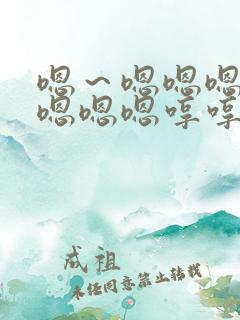 嗯〜嗯嗯嗯
嗯嗯嗯哼哼
成祖
未经同意禁止转载